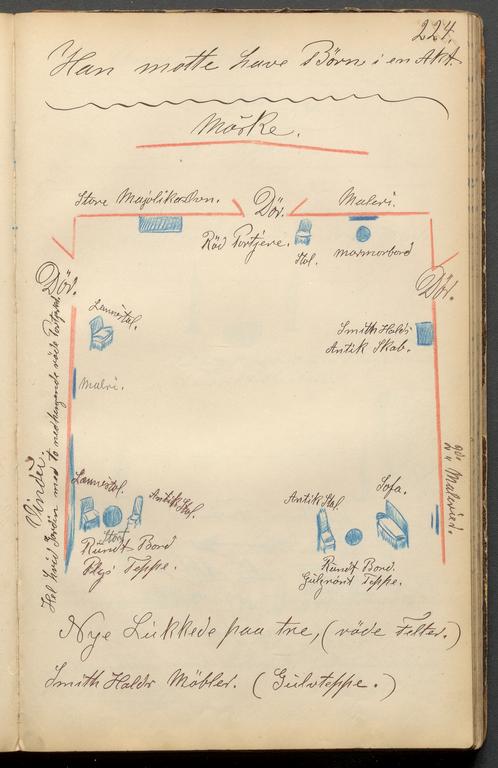 224.
Han motte have Börn i en Akt.
Mörke.
Store Majolikovn.
Dör.
Maleri.
Röd Portjere.
Stol.
marmorbord
Dör.
Dör.
Lænnestol.
Smith Halds
Antik Skab.
Malri.
Vindu.
Hel hvid Gardin med to nedhængende röde
Maleried.
Lænnestol.
Antik Stol.
Stort
Rundt Bord
Plys Teppe.
Antik Stol.
Sofa.
Rundt Bord.
Gulgrönt Teppe.
Nye Lukkede paa tre, (röde Felter.)
Smith Halds Möbler. (Gulvteppe.)